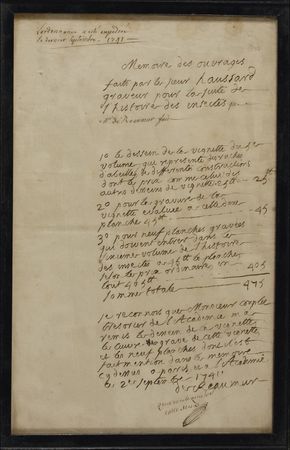 L'ordonnance a esté expediée
le dernier Septembre 1741
Memoire des ouvrages
faits par le sieur haussard
graveur pour la suite de
l'histoire des insectes
Mr de Reaumur
1º le dessein de la vignette du 5e
volume que represente les ruches
d'abeilles de differente construction
dont le prix comme celui des
autres desseins de vignette 25tt 25tt
2º pour la gravure de la
vignette evaluée a celle d'une
planche 45tt 45
3º pour neuf planches gravées
qui doivent entrer dans le
cinquieme volume de l'histoire
des insectes a 45tt la planche
selon le prix ordinaire en
tout 405tt 405
somme totale 475
je reconnois que Monsieur couplet
tresorier de l'Academie m'a
remis le dessein de la vignette
le cuivre gravé de cette vignette
et les neuf planches dont il est
fait mention dans le memoire
cy dessus a paris a l'Academie
le 2e Septembre 1741
de Reaumur